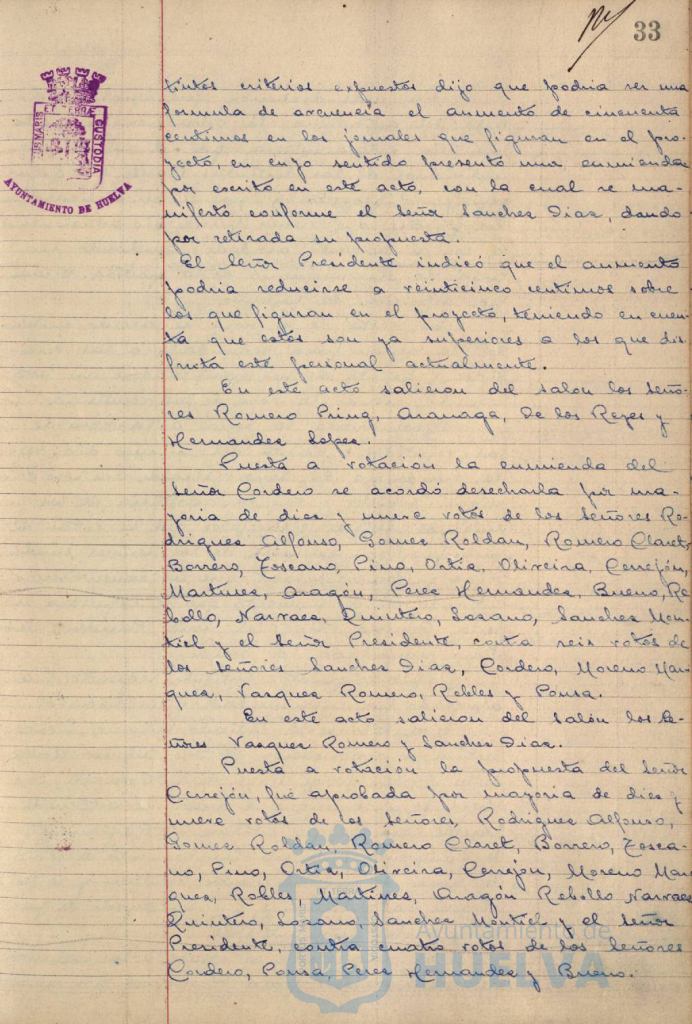 33
PORTUS MARIS ET TERRAE CUSTODIA
AYUNTAMIENTO DE HUELVA
tintos criterios expuestos dijo que podria ser una
formula de avenencia el aumento de cincuenta
centimos en los jornales que figuran en el pro-
yecto, en cuyo sentido presentó una enmienda
por escrito en este acto, con la cual se ma-
nifestó conforme el Señor Sanchez Diaz, dando
por retirada su propuesta.
El Señor Presidente indicó que el aumento
podria reducirse a veinticinco centimos sobre
los que figuran en el proyecto, teniendo en cuen-
ta que estos son ya superiores a los que dis-
fruta este personal actualmente.
En este acto salieron del salon los Seño-
res Romero Aranaga, De los Reyes y
Hernandez Lopez.
Puesta a votación la enmienda del
Señor Cordero se acordó desecharla por ma-
yoria de diez y nueve votos de los Señores Ro-
driguez Alfonso, Gomez Roldan, Romero Claret,
Borrero, Toscano, Pino, Ortiz, Oliveira, Cerrejón,
Martinez, Aragón, Perez Hernandez, Bueno, Re-
bollo, Narvaez, Quintero, Lozano, Sanchez Mon-
tiel y el Señor Presidente, contra seis votos de
los Señores Sanchez Diaz, Cordero, Moreno Mar-
quez, Vazquez Romero, Robles y Ponsa.
En este acto salieron del Salón los Se-
ñores Vazquez Romero y Sanchez Diaz.
Puesta a votación la propuesta del Señor
Cerrejón, fué aprobada por mayoria de diez y
nueve votos de los Señores, Rodriguez Alfonso,
Gomez Roldan, Romero Claret, Borrero, Tosca-
no, Pino, Ortiz, Oliveira, Cerrejón, Moreno Mar-
quez, Robles, Martinez, Aragón Rebollo Narvaez
Quintero, Lozano, Sanchez Montiel y el Señor
Presidente, contra cuatro votos de los Señores
Cordero, Ponsa, Perez Hernandez y Bueno.
Ayuntamiento de
HUELVA